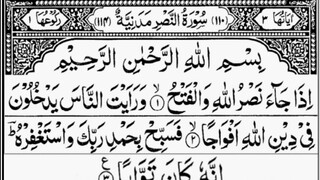 اٰيَاتُهَا ٣ (١١٠) سُوْرَةُ النَّصْرِ مَدَنِيَّةٌ (١١٤) رُكُوْعُهَا ١
بِسْمِ اللهِ الرَّحْمٰنِ الرَّحِيْمِ
اِذَا جَآءَ نَصْرُ اللهِ وَالْفَتْحُ ۙ١ وَرَاَيْتَ النَّاسَ يَدْخُلُوْنَ
فِيْ دِيْنِ اللهِ اَفْوَاجًا ۙ٢ فَسَبِّحْ بِحَمْدِ رَبِّكَ وَاسْتَغْفِرْهُ ؕ
اِنَّهٗ كَانَ تَوَّابًا ٣ ع